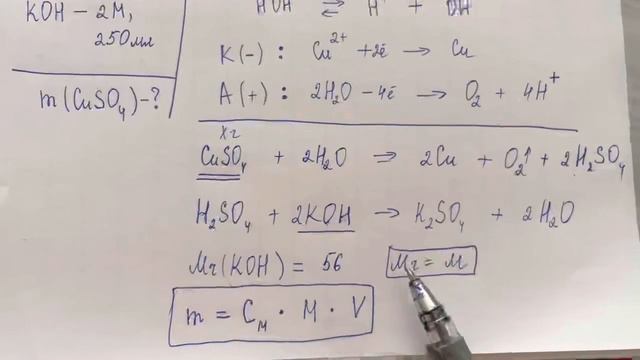 KOH – 2M,
250мл
m(CuSO₄)–?
HOH ⇌ H⁺ + OH⁻
K(–): Cu²⁺ + 2ē → Cu
A(+): 2H₂O – 4ē → O₂ + 4H⁺
x г
CuSO₄ + 2H₂O ⇒ 2Cu + O₂↑ + 2H₂SO₄
H₂SO₄ + 2KOH → K₂SO₄ + 2H₂O
Mr(KOH) = 56
Mr = M
m = Cₘ · M · V